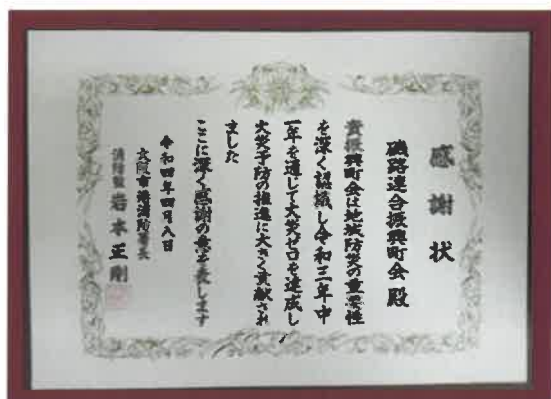 感謝状
磯路連合振興町会殿
貴振興町会は地域防災の重要性
を深く認識し令和三年中
一年を通じて火災ゼロを達成し
火災予防の推進に大きく貢献され
ました
ここに深く感謝の意を表します
令和四年四月八日
大阪市港消防署長
消防監 岩本正剛